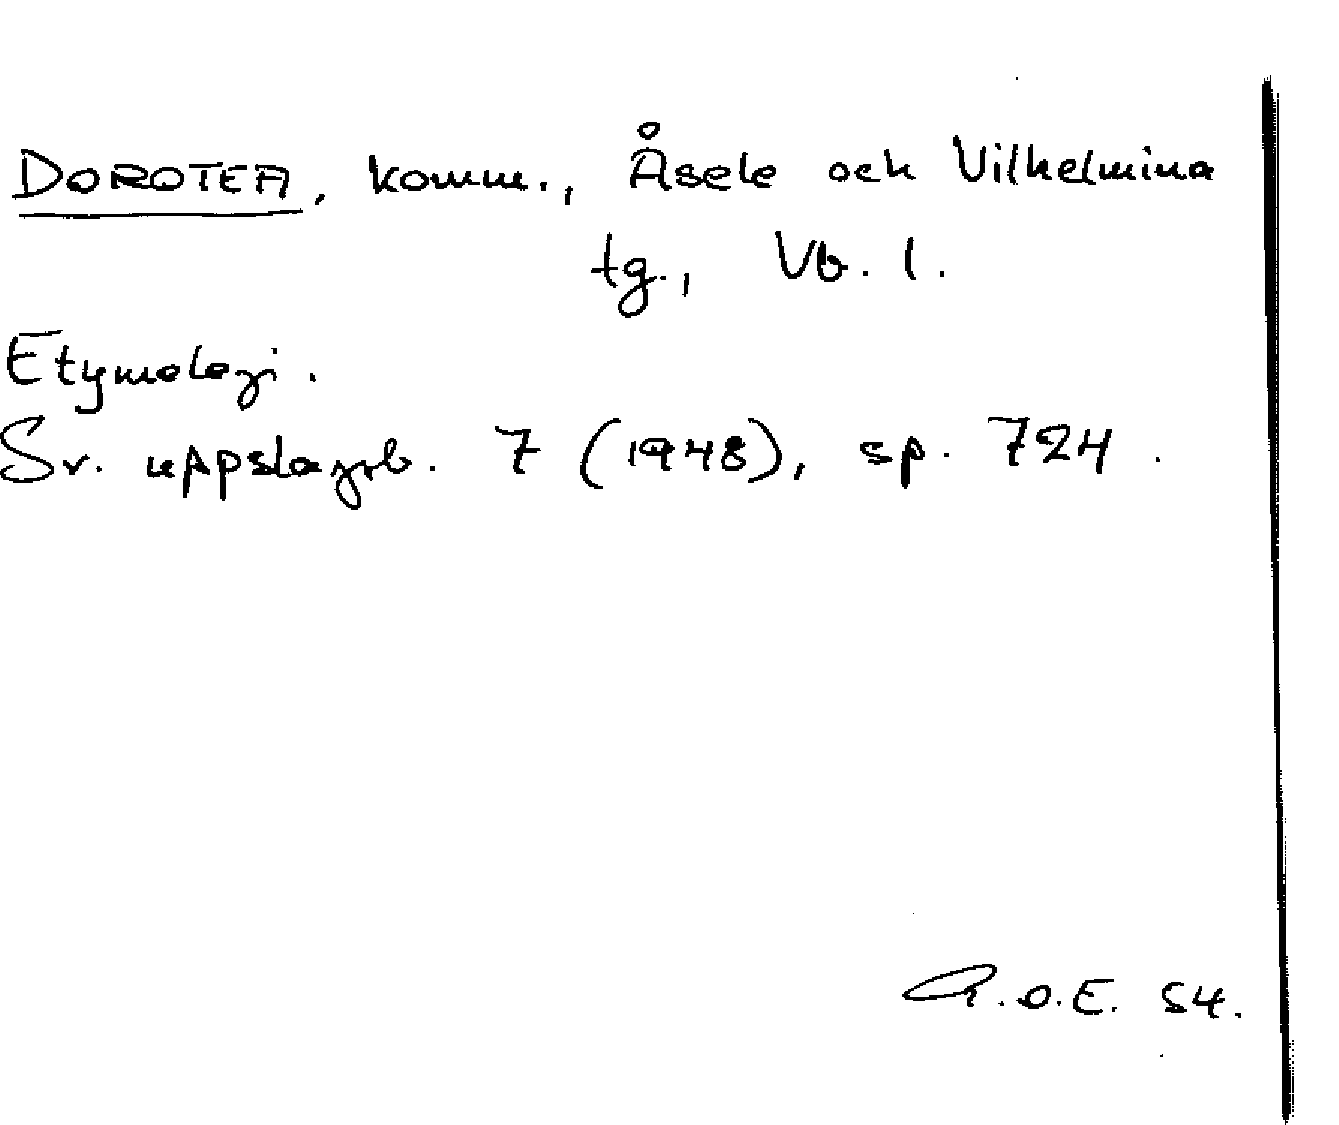 DOROTEA, komm., Åsele och Vilhelmina
tg., Vb. l.
Etymologi.
Sv. uppslagsb. 7 (1948), sp. 724.
O.E. 54.